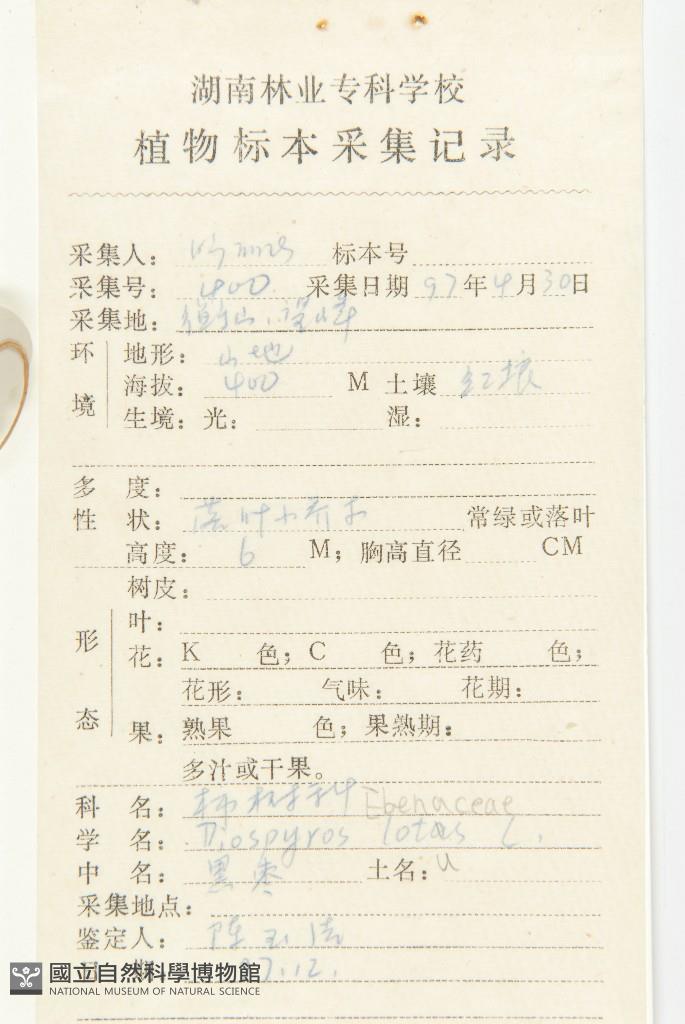 湖南林业专科学校
植物标本采集记录
采集人： 标本号
采集号： 400 采集日期 97年4月30日
采集地： 望峰
环境
地形： 山地
海拔： 400 M 土壤 红壤
生境：光： 湿：
多 度：
性 状： 落叶小乔木 常绿或落叶
高度： 6 M；胸高直径 CM
形态
树皮：
叶：
花：K 色；C 色；花药 色；
花形： 气味： 花期：
果：熟果 色；果熟期：
多汁或干果。
科 名： 柿树科 Ebenaceae
学 名： Diospyros lotus L.
中 名： 黑枣 土名：u
采集地点：
鉴定人： 陈
97.12.
國立自然科學博物館
NATIONAL MUSEUM OF NATURAL SCIENCE